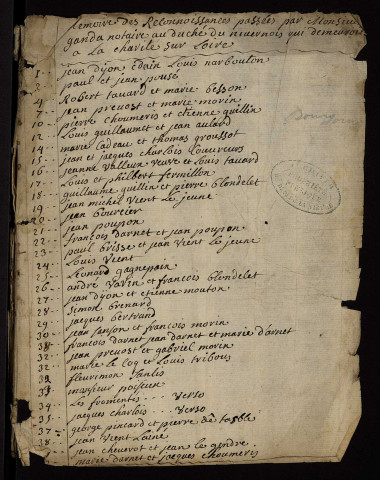 memoire des Reconnoissances passées par Monsieur
ganda notaire au duché du nivernois qui demeuroit
a La charité sur Loire
1 jean dijon edain Louis narboulon
3 paul et jean pousé
4 Robert tavard et marie besson
7 jean prevost et marie morin
10 pierre choumeris et etienne guillin
12 Louis guillaumet et jean aulard
14 marie Ladeau et thomas groussot
15 jean et jacques charlois Laboureurs
16 jeanne valleux veuve et Louis tavard
17 Louis et philbert fermillon
18 guillaume guillin et pierre blondelet
19 jean michel vient Le jeune
20 jean bourcier
21 jean poupon
22 françois darnet et jean poupon
23 paul brisse et jean vient Le jeune
24 Louis vient
25 Leonard gagnepain
26 andre varin et francois blondelet
27 jean dijon et etienne mouton
28 simon brenard
29 jacques bertrand
30 jean sanson et francois morin
30 francois darnet jean darnet et marie darnet
32 jean prevost et gabriel morin
32 marie Le coq et Louis tribout
33 fleurimon senlis
33 monsieur poisieux
34 Les fromentes verso
35 jacques charlois verso
37 george pincard et pierre de
38 jean vient Lainé
jean cheverot et jean Le gendre
marie darnet et jacques choumeris